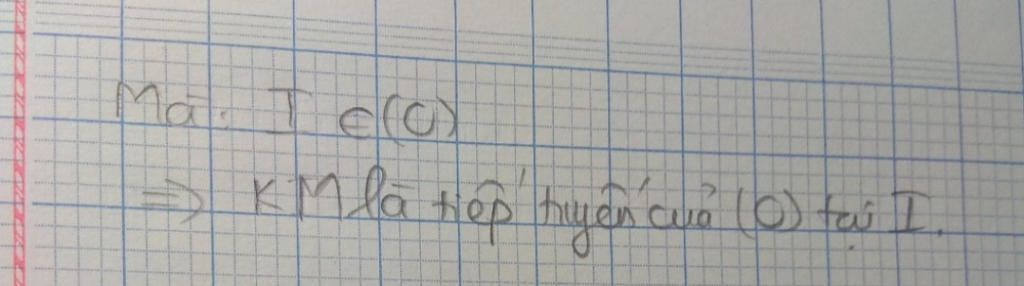 Mà: I ∈ (O)
=> KM là tiếp tuyến của (O) tại I.